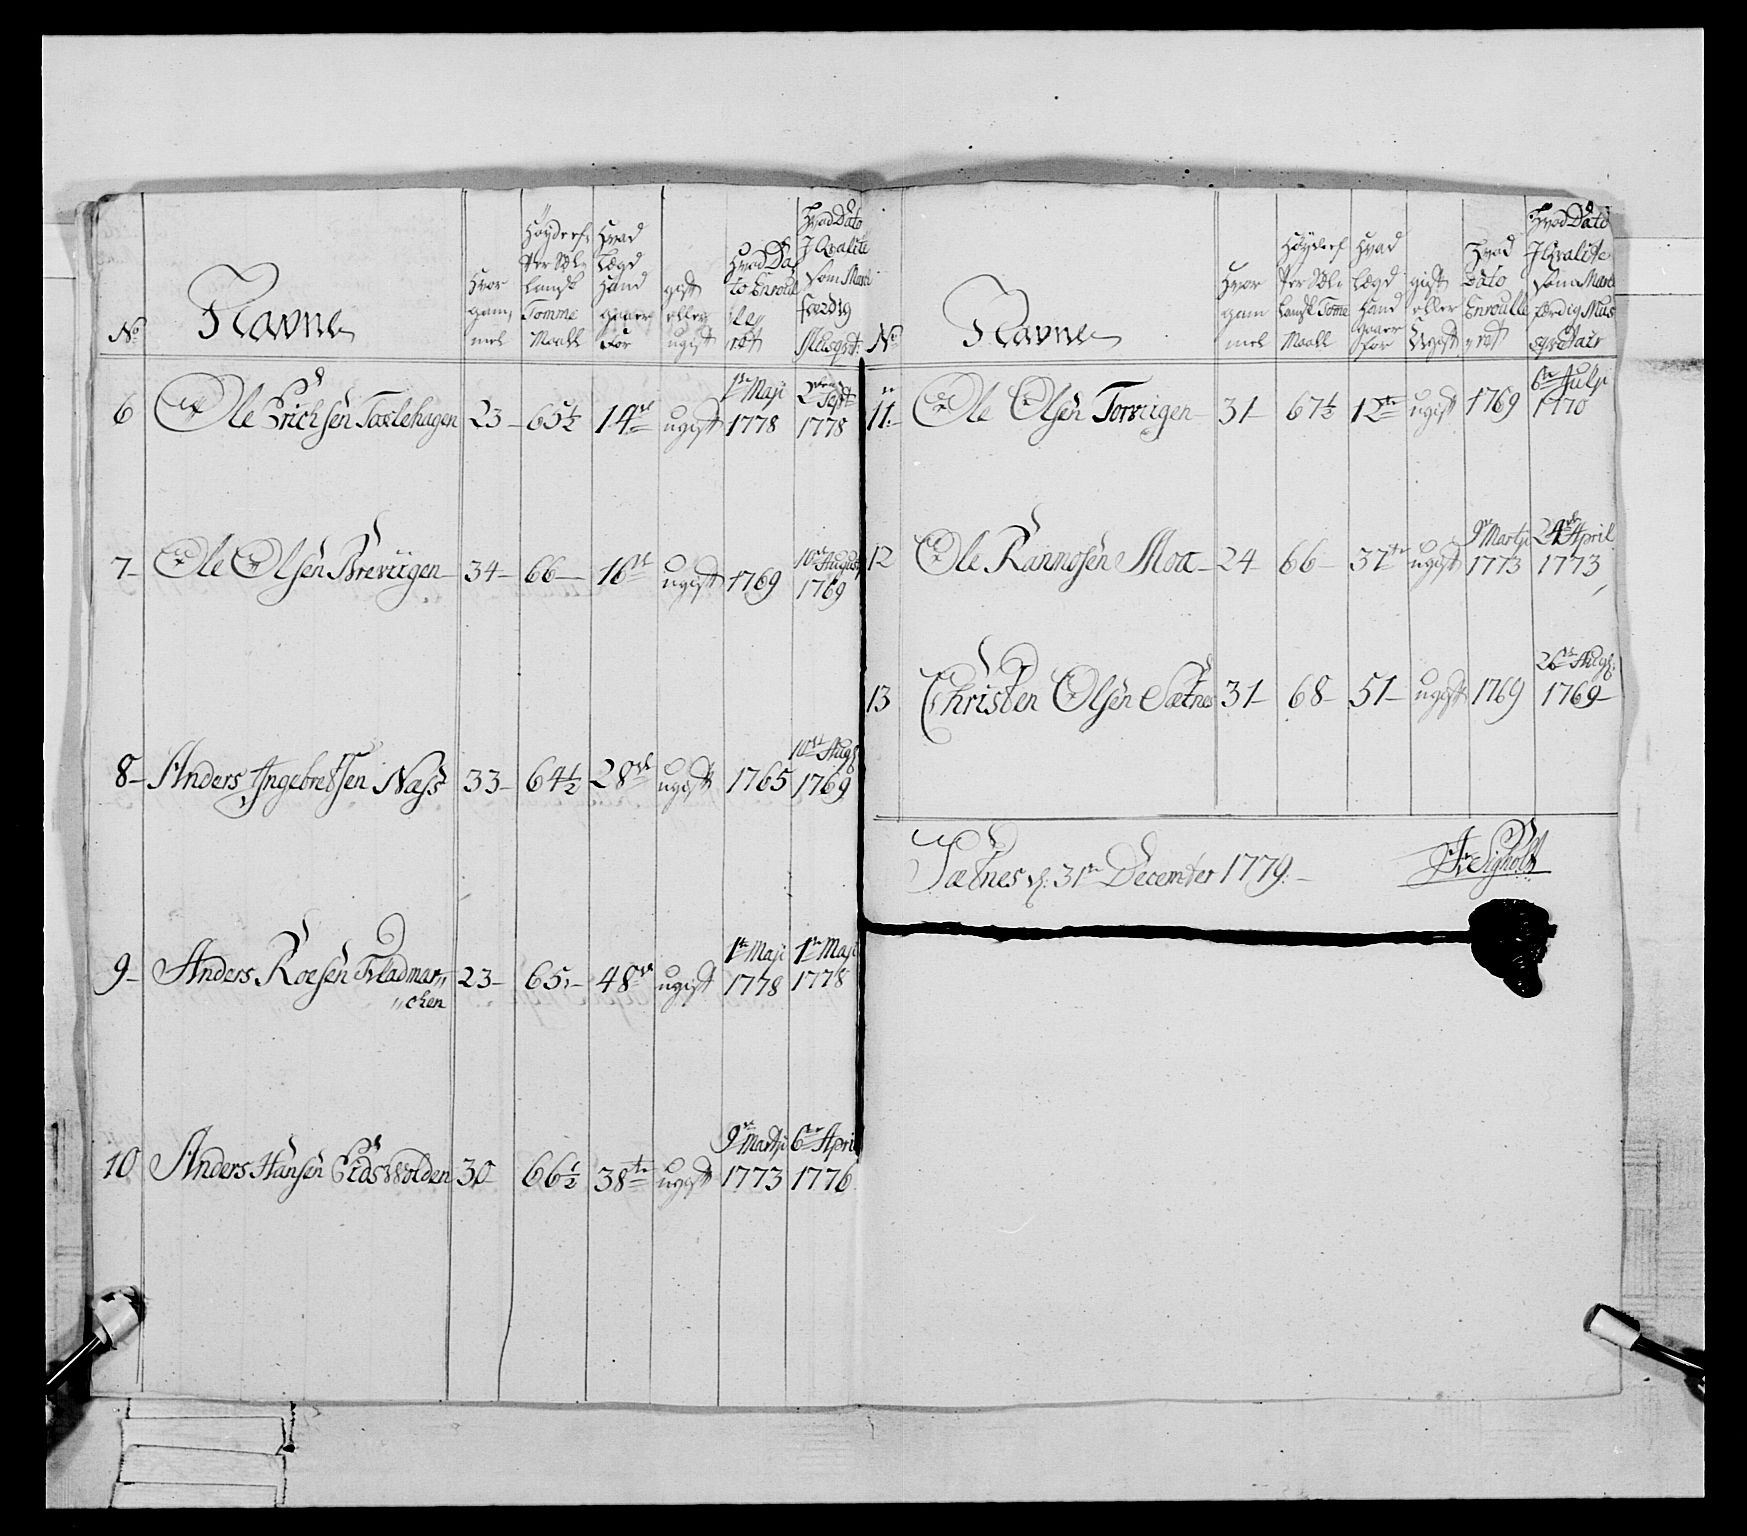 No
Navne
Hvor gam mel
Høyde ef. Per Siæl landsk Tomme Maall
Hvad Lægd Hand gaaer for
gift eller ugift
Hvad Da to Enroul le ret
Hvad Dato J Qvalite som Mars færdig Musqvt:
6 Ole Erichsen Tarlehagen 23 65½ 14de ugift 1te Maji 1778 2den Sept 1778
7 Ole Olsen Breviigen 34 66 16de ugift 1769 10de August 1769
8 Anders Ingebretsen Næss 33 64½ 28de ugift 1765 10de Aug 1769
9 Anders Roesen Fladmar„
„chen 23 65 48de ugift 1te Maji 1778 1te Maji 1778
10 Anders Hansen Eidsvolden 30 66½ 38te ugift 9de Martji 1773 6te April 1776
No
Navne
Hvor gam mel
Høyde ef Per Siæl landsk Tome Maall
Hvad Lægd Hand gaaer for
gift eller Ugift
Hvad Dato Enroulle ret
Hvad Dato J Qvalite som Mars færdig Mus qvetair
11 Ole Olsen Torviigen 31 67½ 12te ugift 1769 6te Julji 1770
12 Ole Rasmusen Moa 24 66 37te ugift 9de Martji 1773 24de April 1773
13 Christen Olsen Sætnes 31 68 51 ugift 1769 26de Aug: 1769
Sætnes d: 31te December 1779.